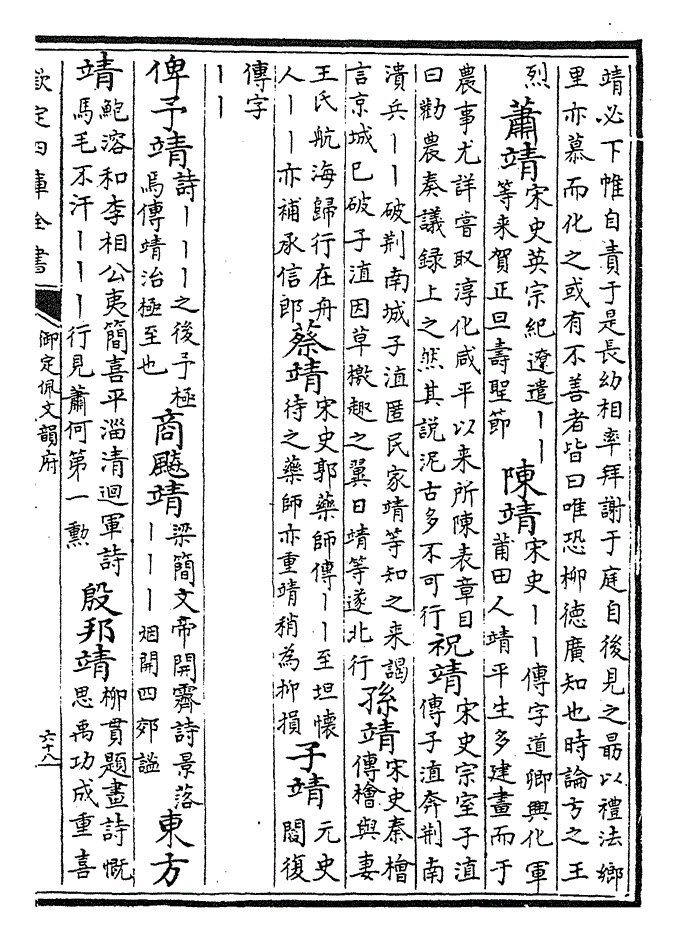 靖必下帷自責于是長幼相率拜謝于庭自後見之最以禮法鄉
里亦慕而化之或有不善者皆曰唯恐柳德廣知也時論方之王
烈 蕭靖 宋史英宗紀遼遣丨丨
等来賀正旦壽聖節 陳靖 宋史丨丨傳字道卿興化軍
莆田人靖平生多建畫而于
農事尤詳嘗取淳化咸平以来所陳表章目
曰勸農奏議録上之然其説泥古多不可行 祝靖 宋史宗室子㵂
傳子㵂奔荆南
潰兵丨丨破荆南城子㵂匿民家靖等知之来謁
言京城已破子㵂因草檄趣之翼日靖等遂北行 孫靖 宋史秦檜
傳檜與妻
王氏航海歸行在舟
人丨丨亦補承信郎 蔡靖 宋史郭藥師傳丨丨至坦懷
待之藥師亦重靖稍為抑損 子靖 元史
閻復
傳字
丨丨
俾予靖 詩丨丨丨之後予極
焉傳靖治極至也 商飈靖 梁簡文帝開霽詩景落
丨丨丨烟開四郊謐 東方
靖 鮑溶和李相公夷簡喜平淄清迴軍詩
馬毛不汗丨丨丨行見蕭何第一勲 殷邦靖 柳貫題畫詩慨
思禹功成重喜
欽定四庫全書
御定佩文韻府
六十八